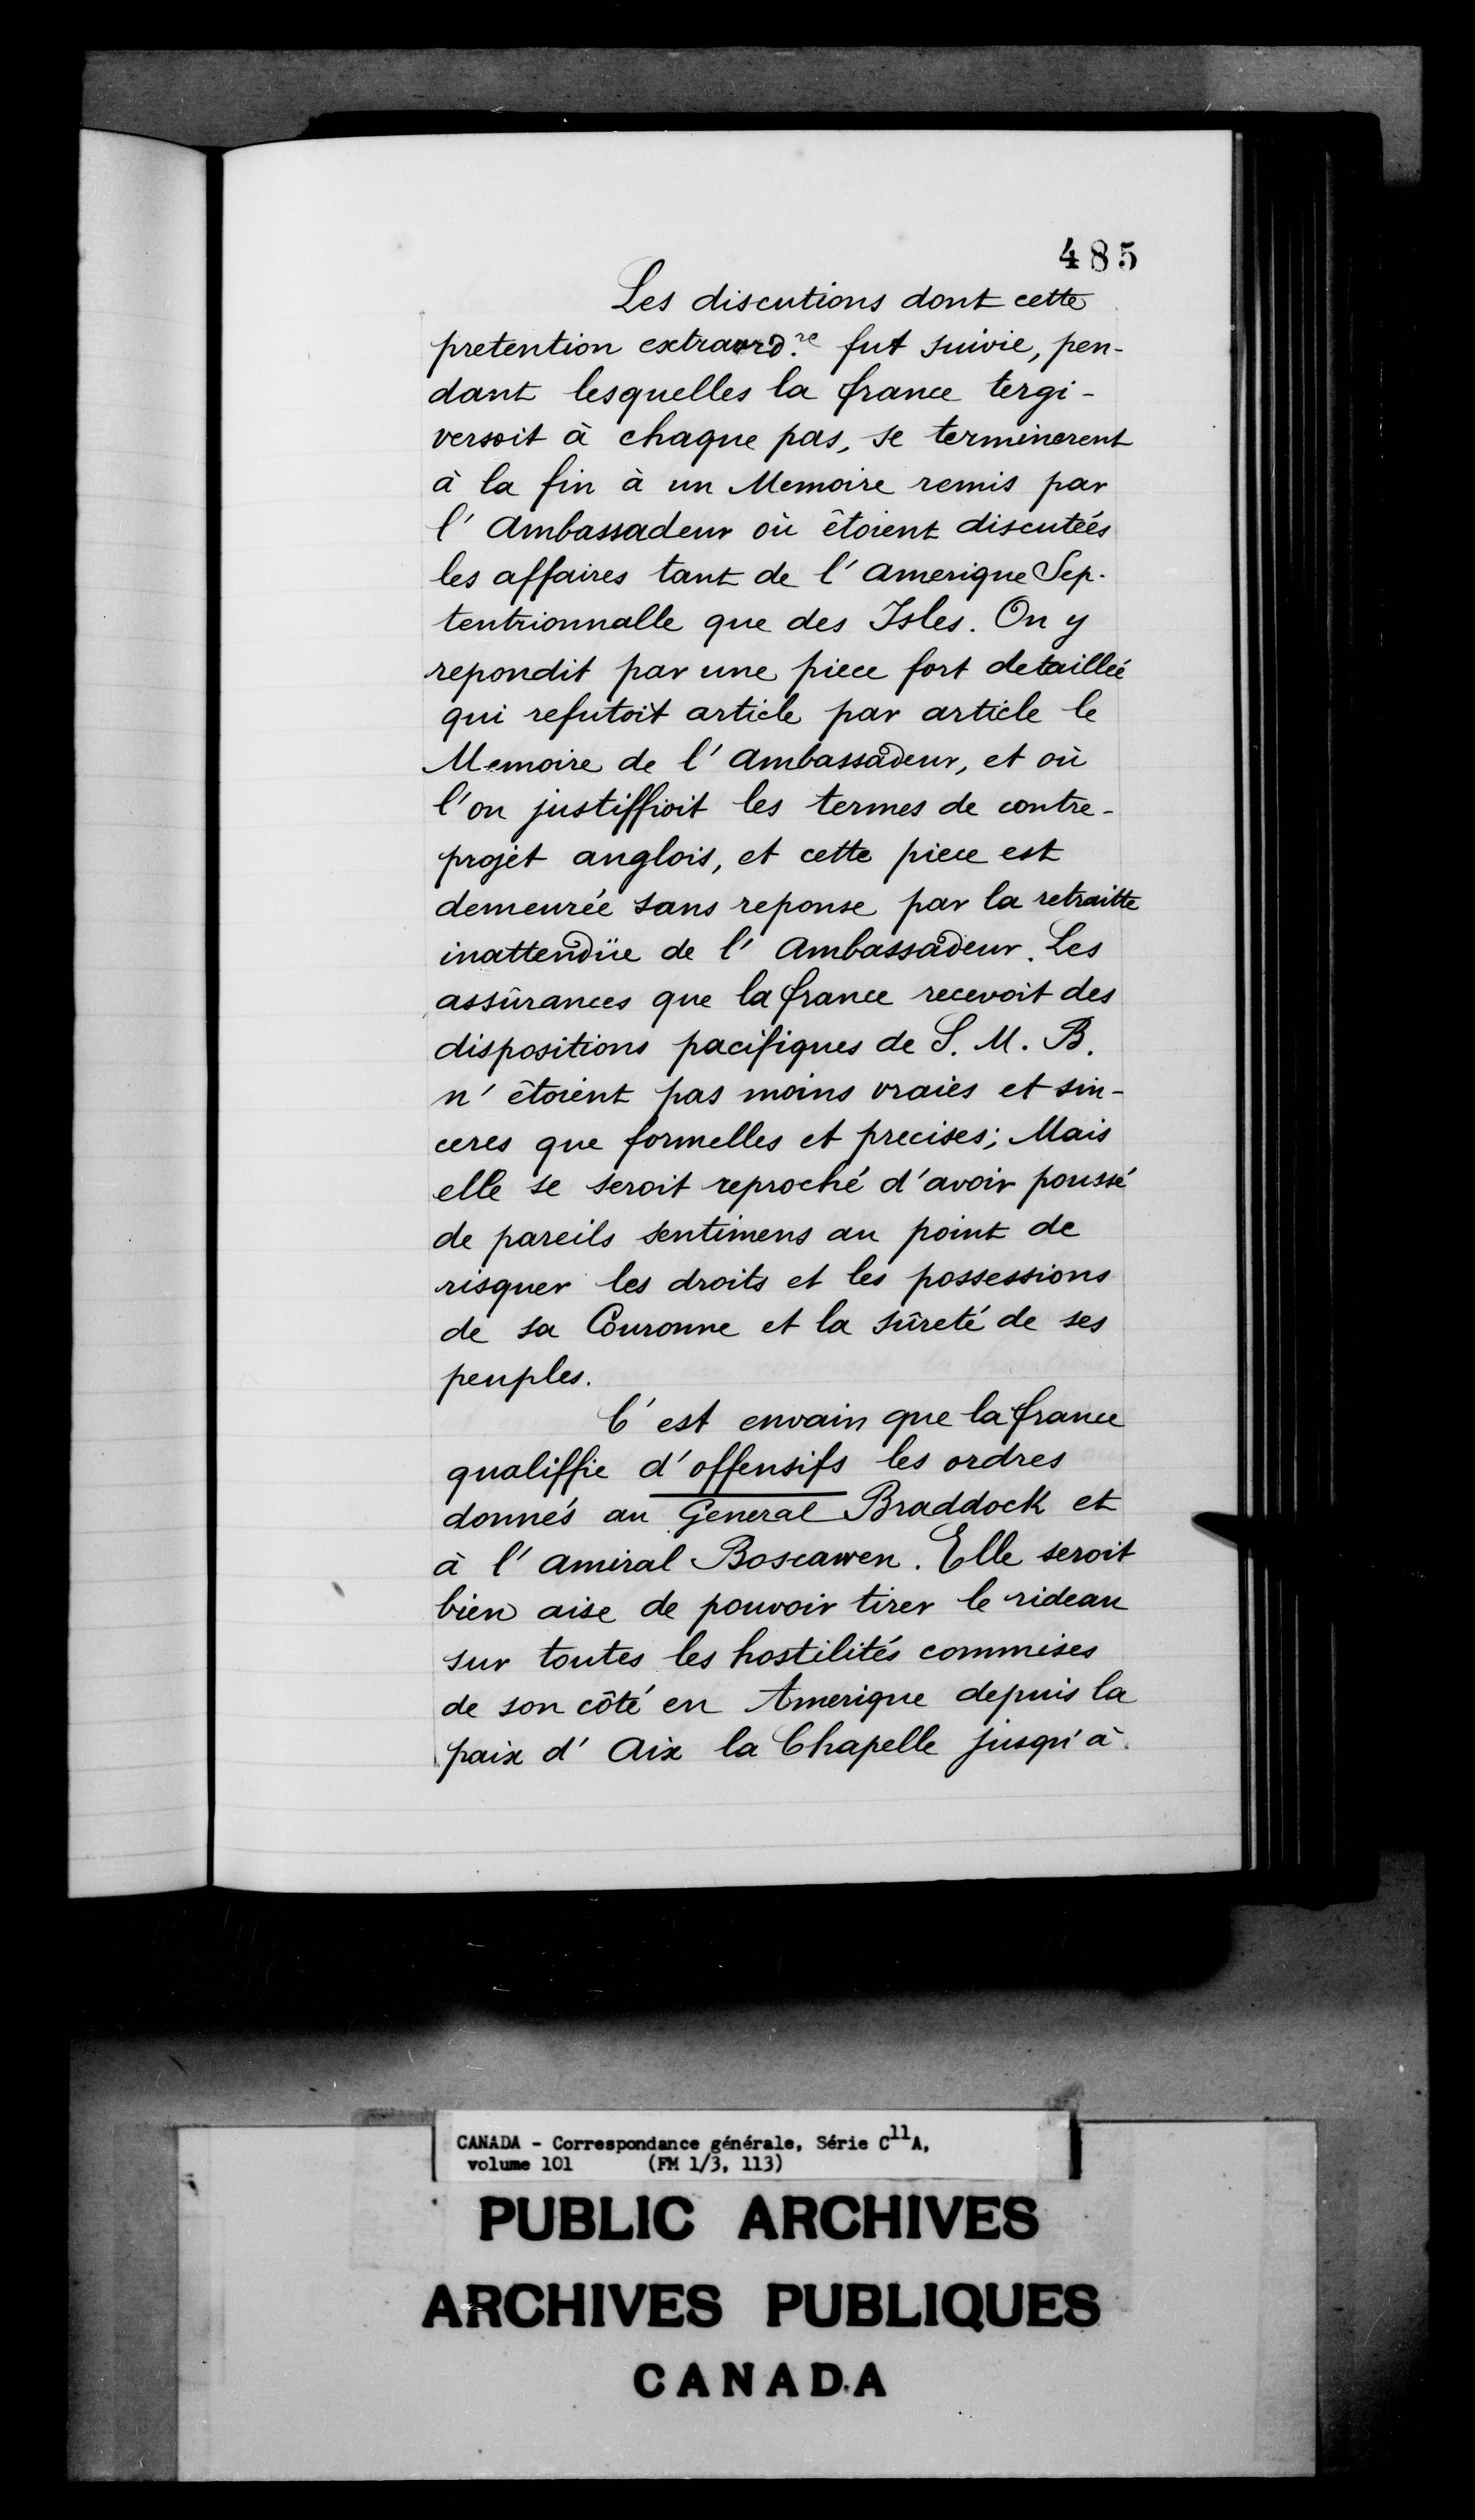 485
Les discutions dont cette
pretention extraord.re fut suivie, pen-
dant lesquelles la france tergi-
versoit à chaque pas, se terminerent
à la fin à un Memoire remis par
l'Ambassadeur où êtoient discuteés
les affaires tant de l'amerique Sep-
tentrionnalle que des Isles. On y
repondit par une piece fort detailleé
qui refutoit article par article le
Memoire de l'Ambassadeur, et où
l'on justiffioit les termes de contre-
projet anglois, et cette piece est
demeurée sans reponse par la retraitte
inattendüe de l'Ambassadeur. Les
assûrances que la france recevoit des
dispositions pacifiques de S. M. B.
n'êtoient pas moins vraies et sin-
ceres que formelles et precises; Mais
elle se seroit reproché d'avoir poussé
de pareils sentimens au point de
risquer les droits et les possessions
de sa Couronne et la sûreté de ses
peuples.
C'est envain que la france
qualiffie d'offensifs les ordres
donnés au General Braddock et
à l'amiral Boscawen. Elle seroit
bien aise de pouvoir tirer le rideau
sur toutes les hostilités commises
de son côté en Amerique depuis la
paix d'Aix la Chapelle jusqu'à
CANADA - Correspondance générale, Série C11A,
volume 101 (FM 1/3, 113)
PUBLIC ARCHIVES
ARCHIVES PUBLIQUES
CANADA